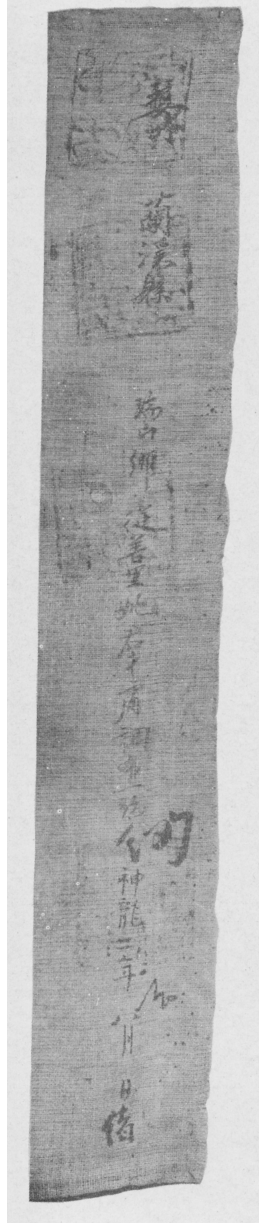 婺州 蘭溪縣 瑞山鄉從善里姚羣庸調布一端 神龍二年八月 日